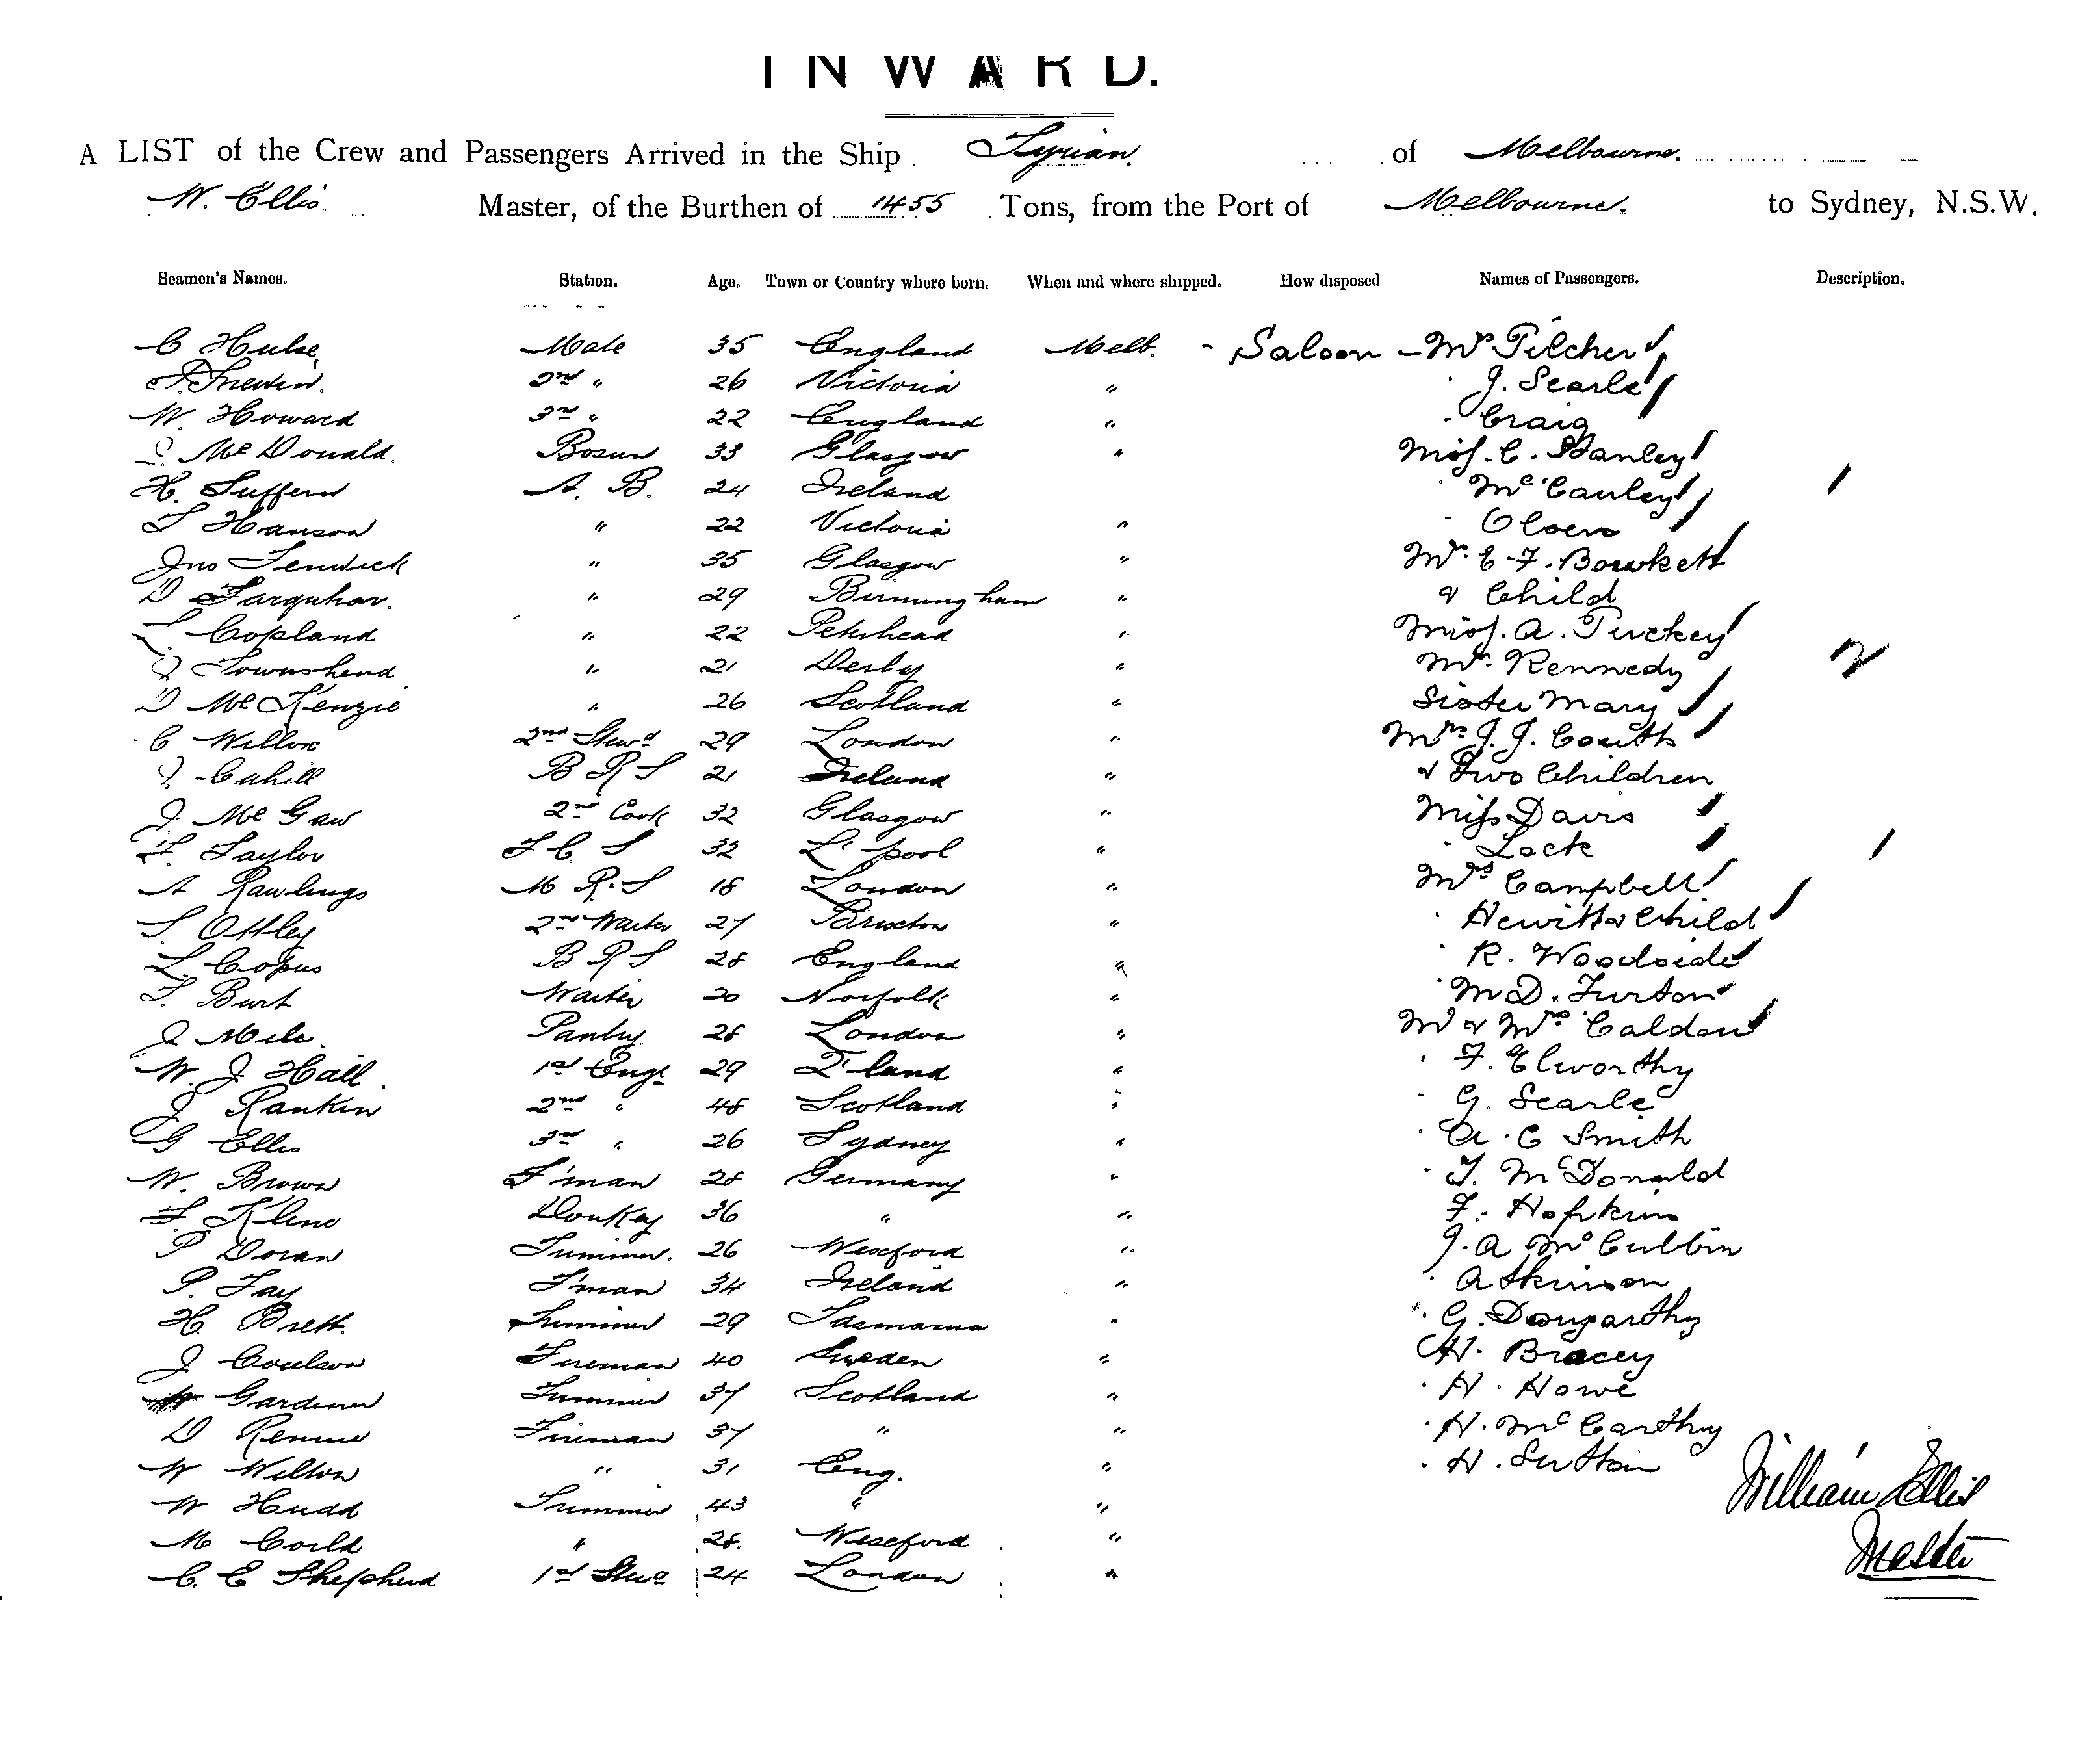 INWARD.
A LIST of the Crew and Passengers Arrived in the Ship Tyrian. of Melbourne.
W. Ellis Master, of the Burthen of 1455 Tons, from the Port of Melbourne. to Sydney, N.S.W.
Seamen's Names. Station. Age. Town or Country where born. When and where shipped. How disposed Names of Passengers. Description.
C Hulse Mate 35 England Melb. - Saloon - Mr Pilcher
2nd " 26 Victoria " J. Searle
W. Howard 3rd " 22 England " Craig
McDonald. Bosun 33 Glasgow " Miss. C. Stanley
H. Suffern A. B. 24 Ireland McCauley
T Hanson " 22 Victoria " Olsen
Jno Fenwick " 35 Glasgow " Mr. C. F. Bowkett
D Farquhar. " 29 Birmingham " & Child
L Copland " 22 Peterhead " Miss. A. Tuckey
J Townshend " 21 Derby " Mr. Kennedy 2
D McKenzie " 26 Scotland " Sister Mary
C Willox 2nd Stewd 29 London " Mrs J. J. Couth
J Cahill B R S 21 Ireland " & Two Children
J McGaw 2nd Cook 32 Glasgow " Miss Davis
F. Taylor F C S 32 L'pool " Lock
A Rawlings M R. S 18 London " Mrs Campbell
S. Ottley 2nd Waiter 27 " Hewitt & Child
L. Copus B R S 28 England " R. Woodside
T. Burt Waiter 20 Norfolk " M D. Turton
J Mile. Pantry 28 London " M & Mrs Caldow
W. J Hall. 1st Engr 29 Q'land " F. Elworthy
J Rankin 2nd " 48 Scotland " G. Searle
G Ellis 3rd " 26 Sydney " A. C Smith
W. Brown F'man 28 Germany " T. McDonald
F. Kline Donkey 36 " " F. Hopkins
P Doran Trimmer. 26 Wexford " J. A McCubbin
P. Fay F'man 34 Ireland " Atkinson
H. Brett. Trimmer 29 Tasmania " G.
J Coulson Fireman 40 Sweden " H. Bracey
Gardiner Trimmer 37 Scotland " H. Howe
D Rennie Fireman 37 " " H. McCarthy
W Wilton " 31 Eng. " H. Sutton
W Hudd Trimmer 43 " "
M Corld " 28. Wexford "
C. E Shepherd 1st Stewd 24 London "
William Ellis
Master